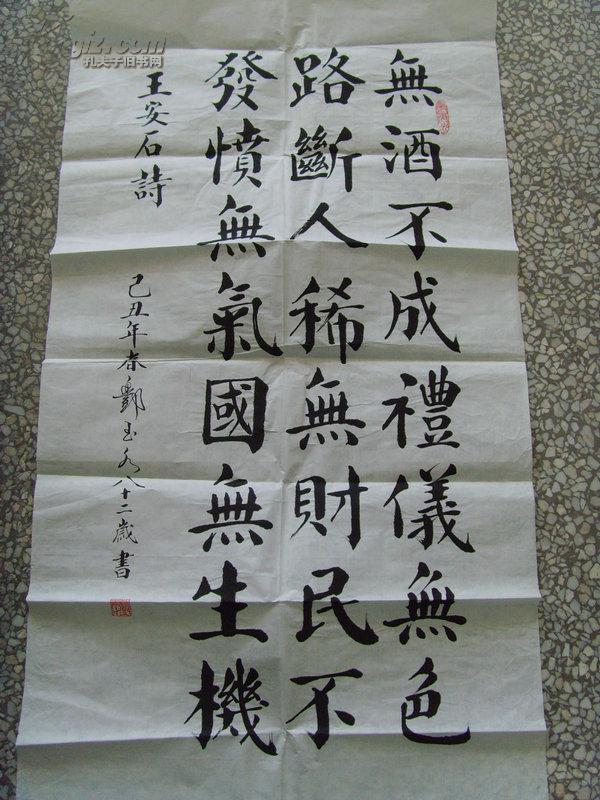 無酒不成禮儀無色
路斷人稀無財民不
發憤無氣國無生機
王安石詩
己丑年春鄧玉春八十二歲書
孔夫子旧书网